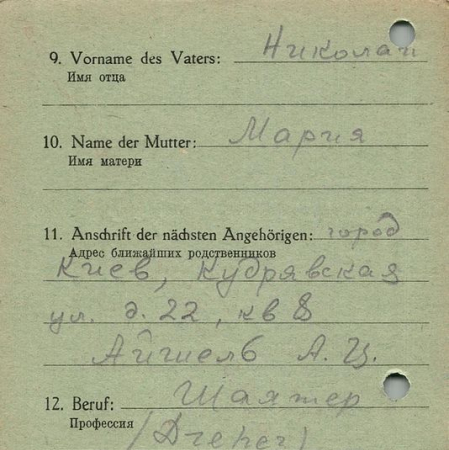 9. Vorname des Vaters: Николай
Имя отца
10. Name der Mutter: Мария
Имя матери
11. Anschrift der nächsten Angehörigen: город
Адрес ближайших родственников
Киев, Кудрявская
ул. д. 22, кв 8
А. Ц.
12. Beruf:
Профессия
(Dreher)